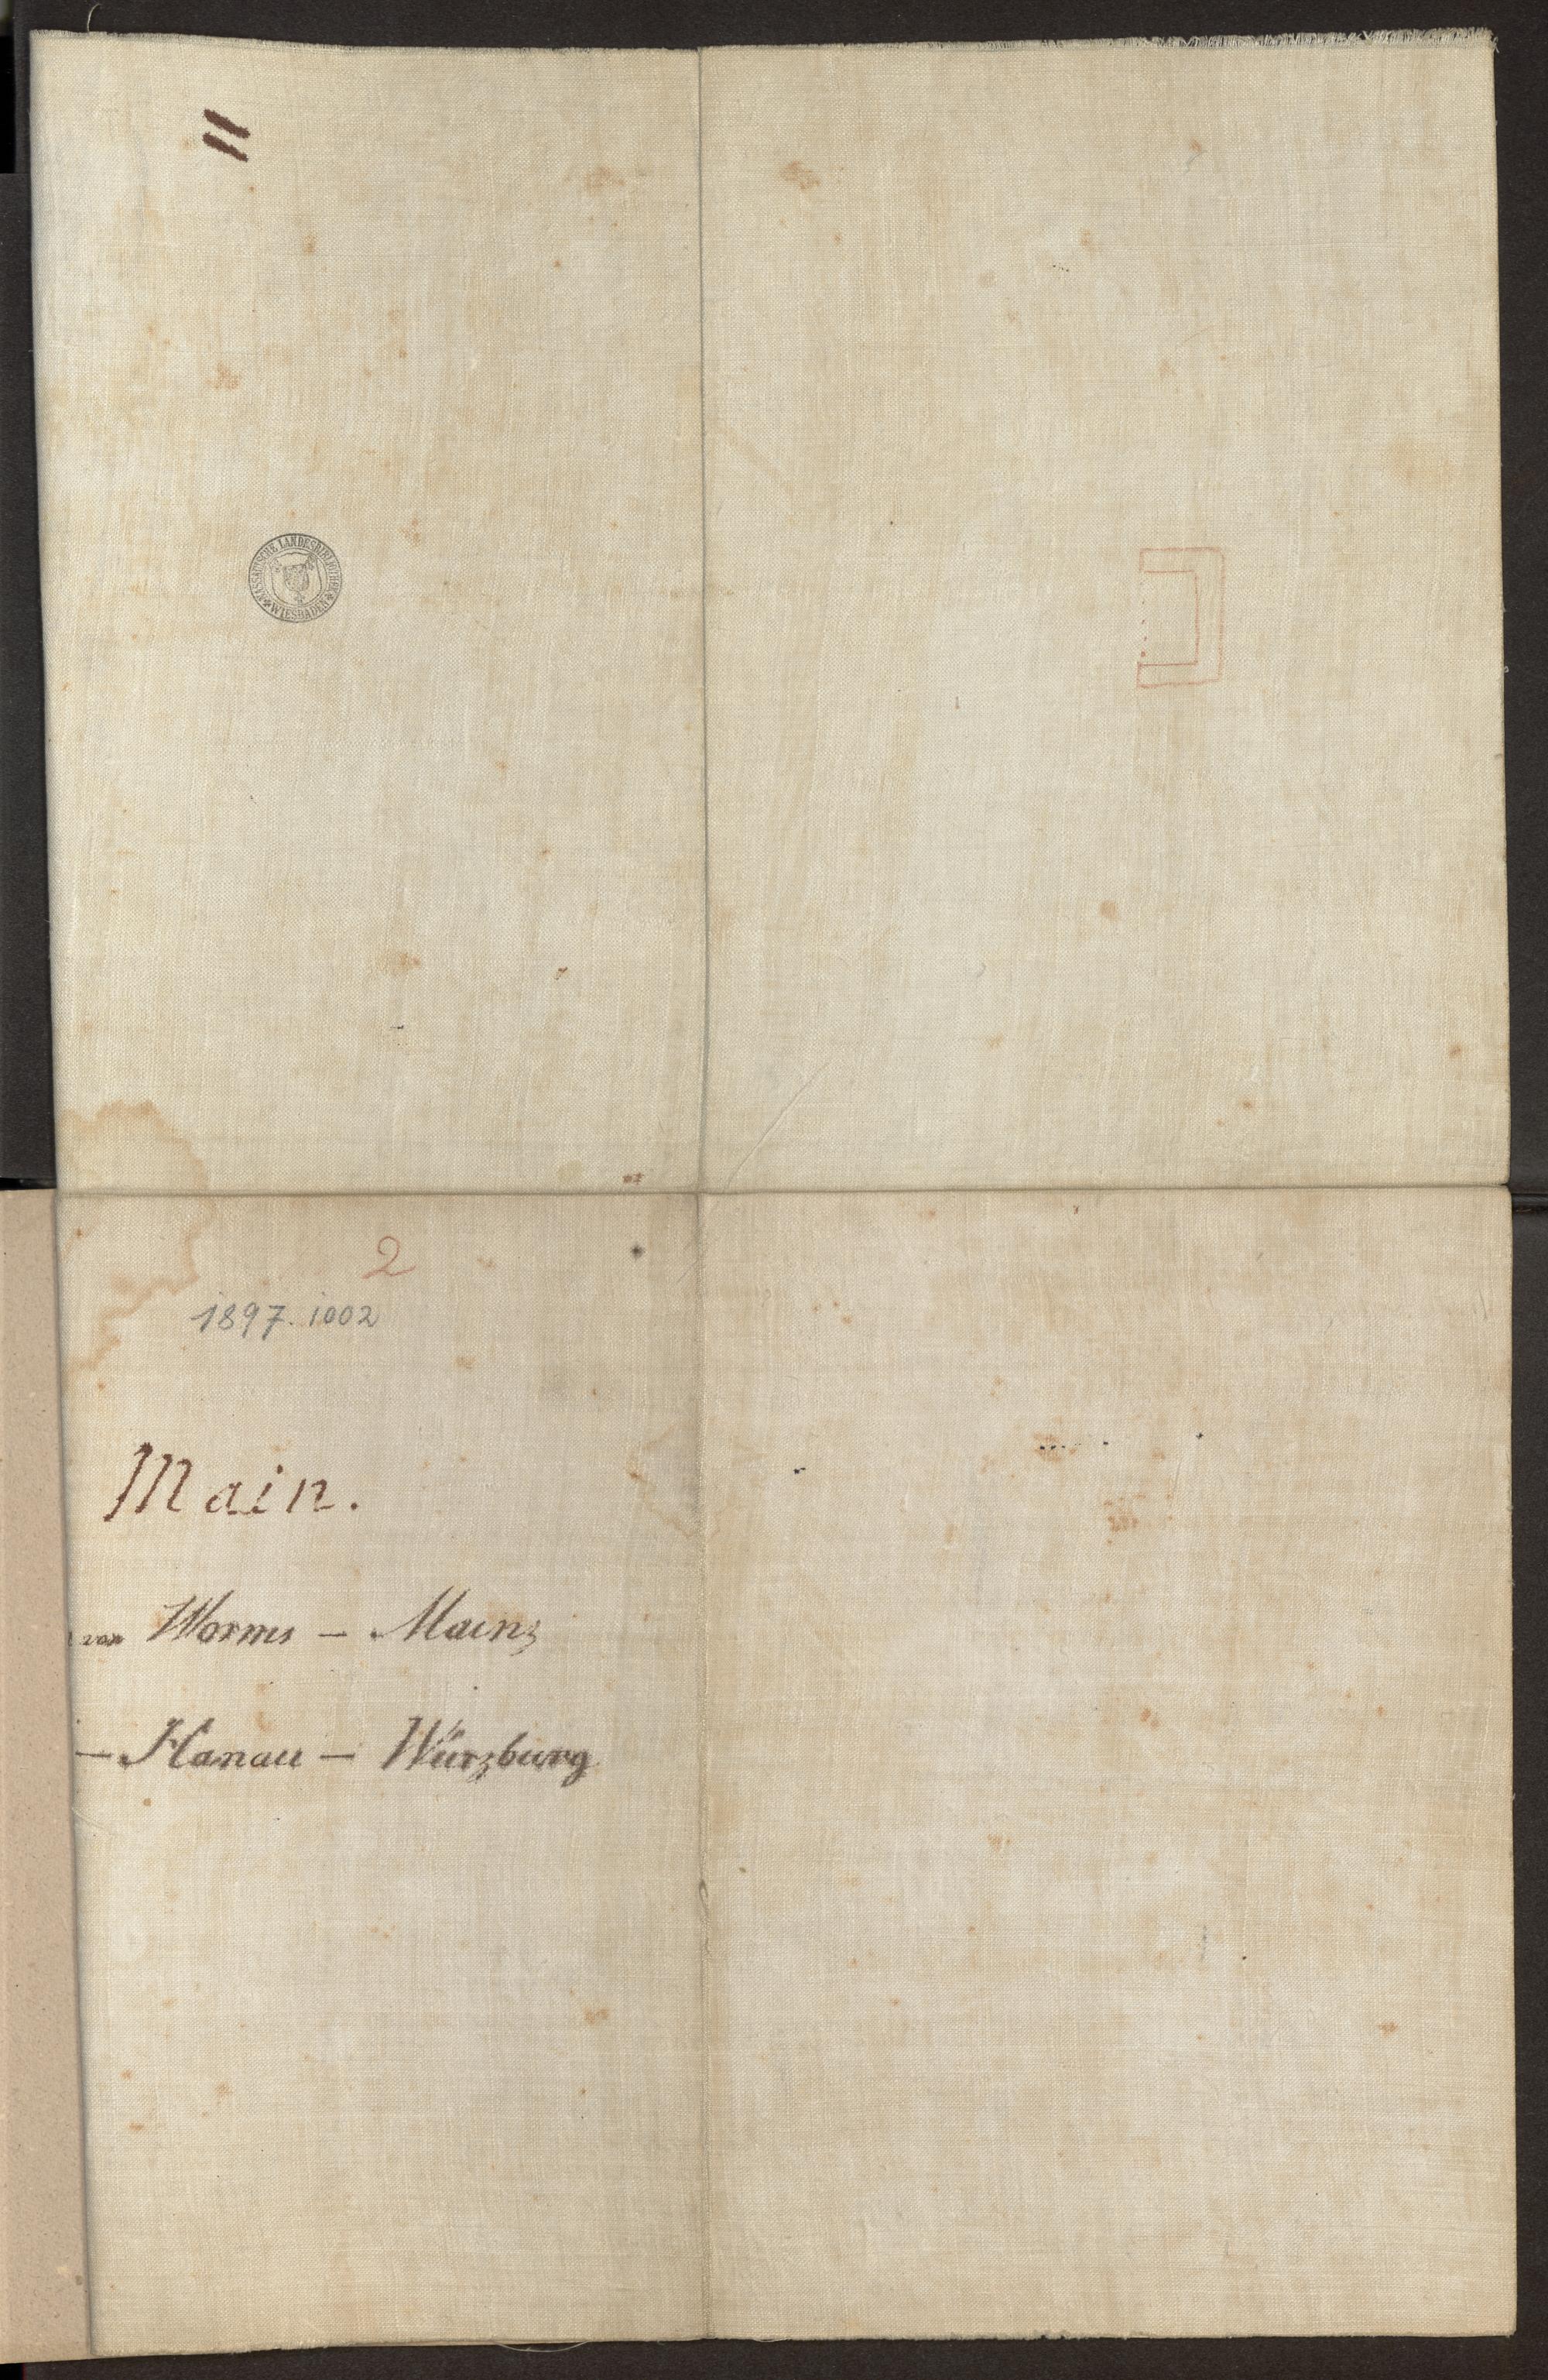 NASSAUISCHE LANDESBIBLIOTHEK
* WIESBADEN *
2
1897. 1002
Main.
von Worms – Mainz
– Hanau – Würzburg